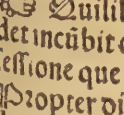 Quilib
det incūbit c
cessione que
Propter di